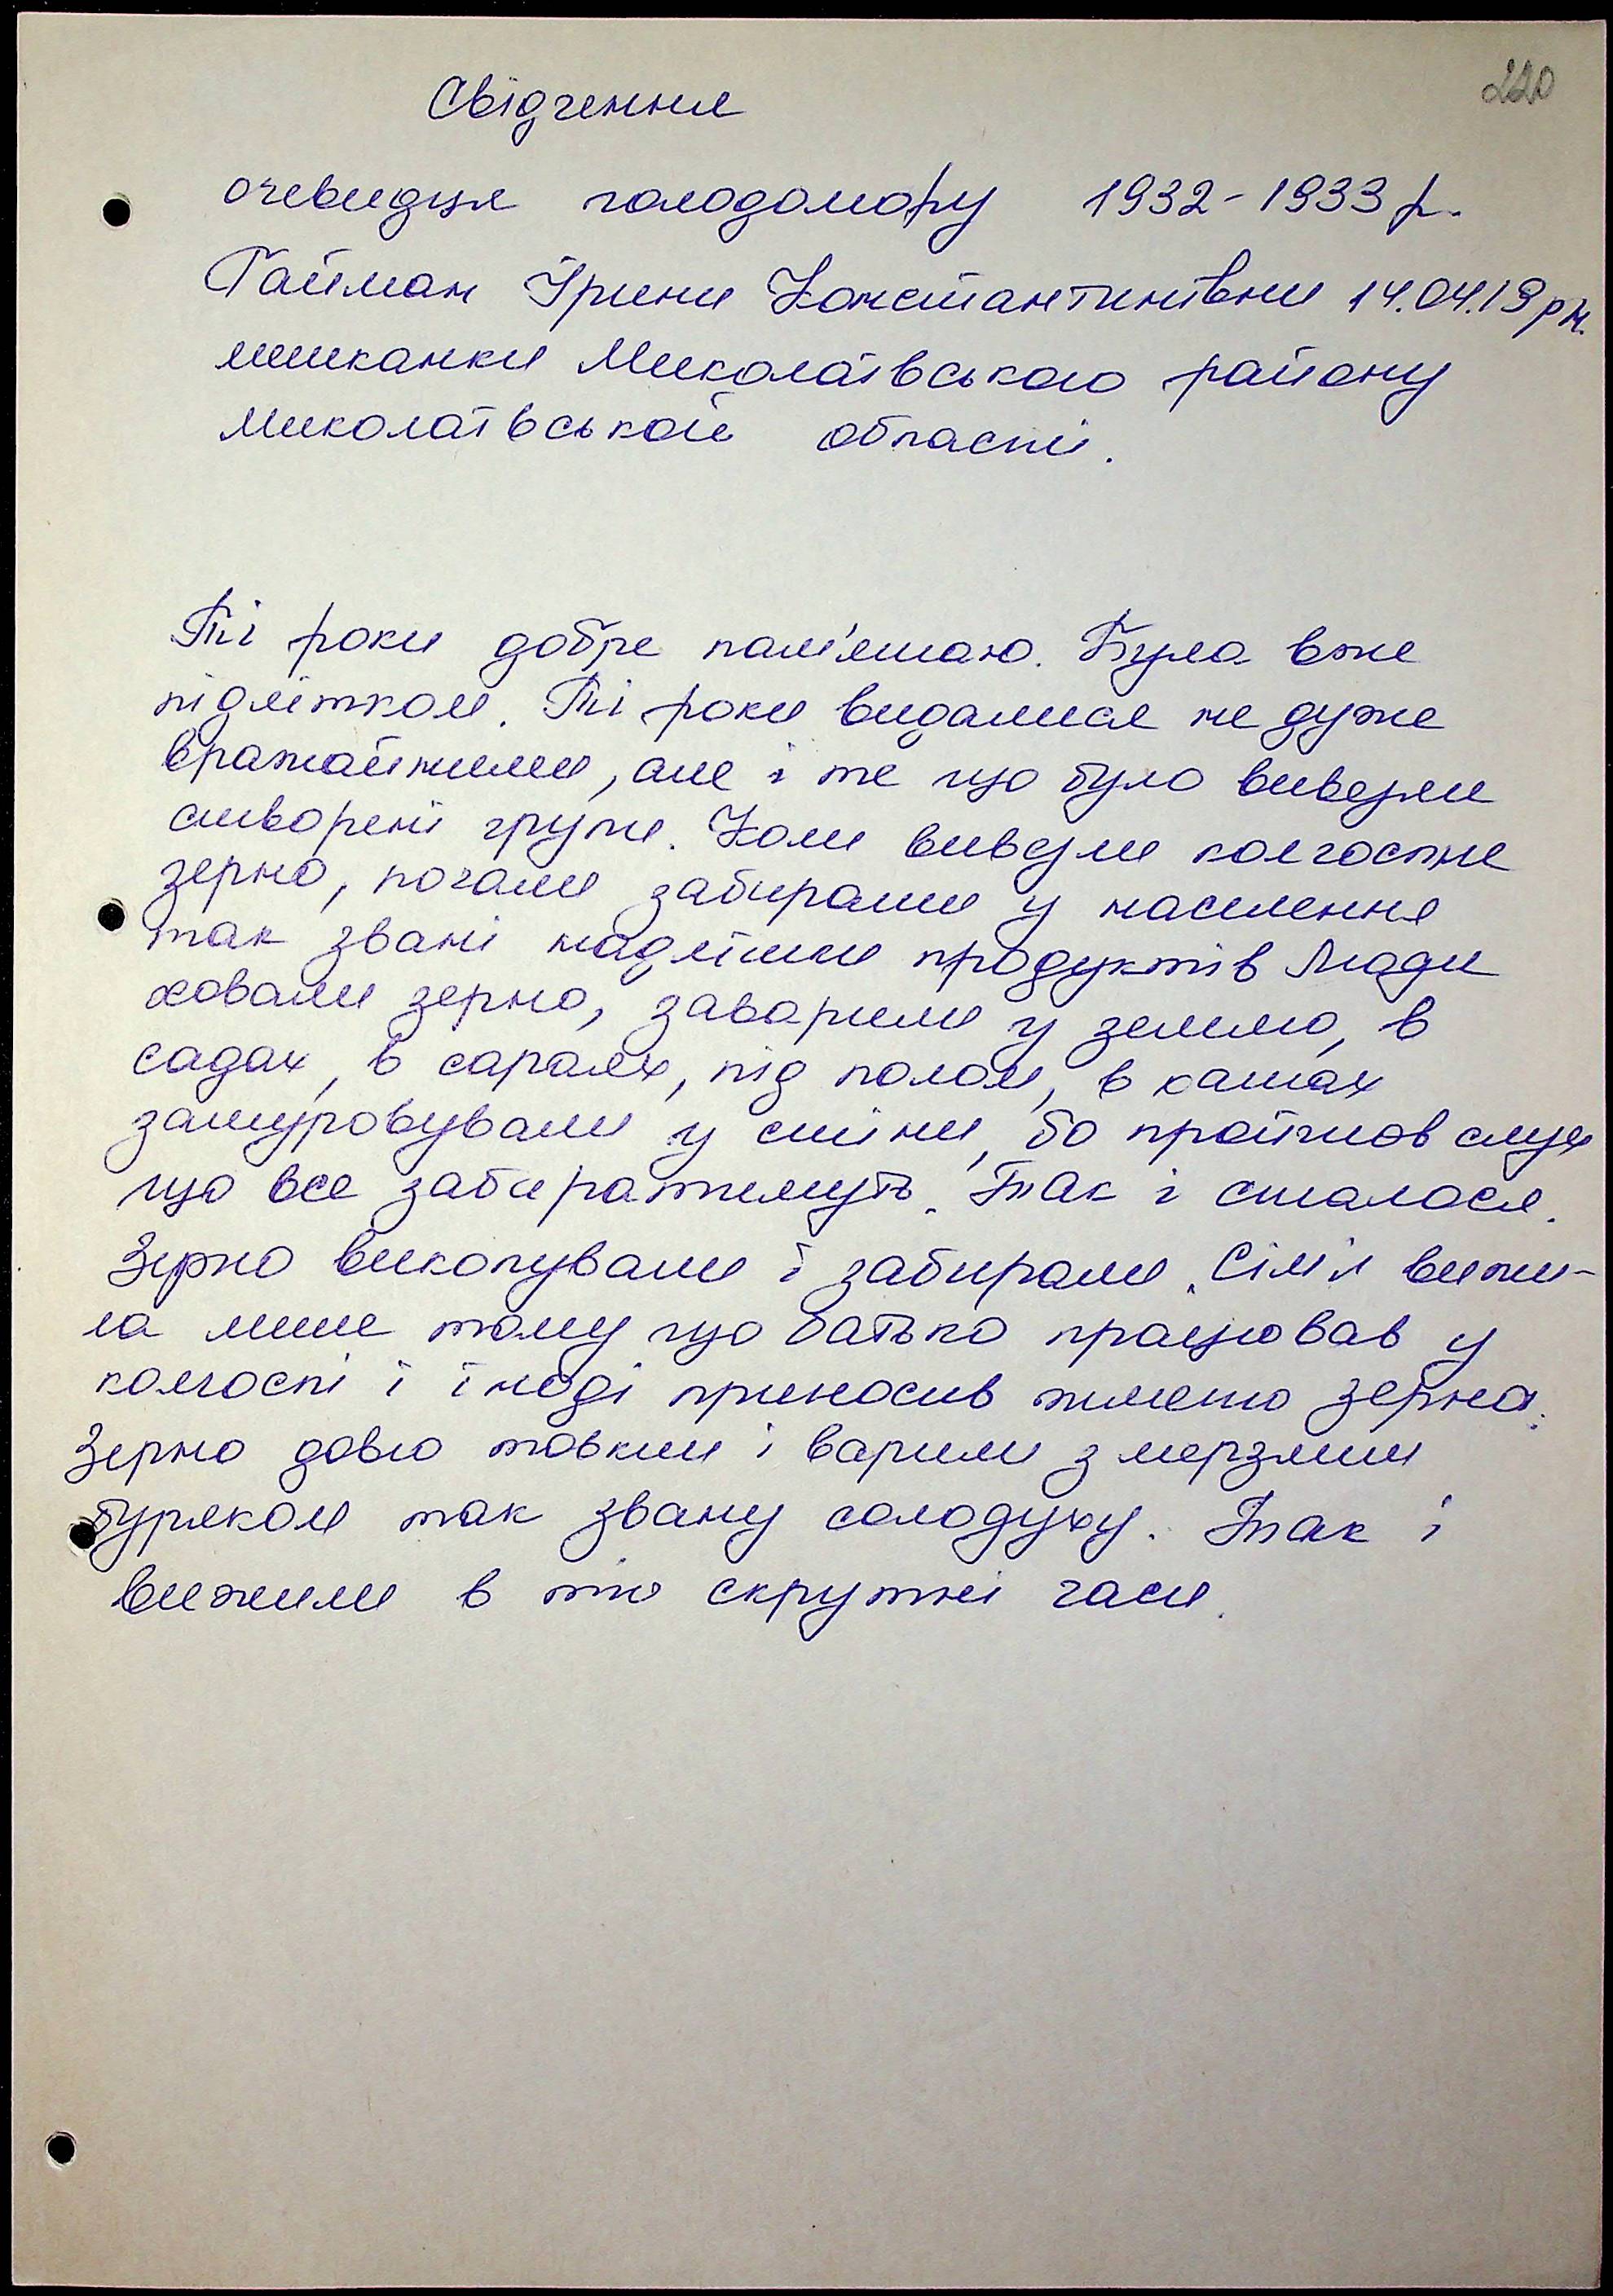 220
Свідчення
очевидця голодомору 1932-1933 р.
Гайман Ірини Константинівни 14.04.19 рн.
мешканки Миколаївського району
Миколаївської області.
Ті роки добре пам'ятаю. Була вже
підлітком. Ті роки видалися не дуже
вражайними, але і те що було вивезли
створені групи. Коли вивезли колгоспне
зерно, почали забирати у населення
так звані надлішки продуктів Люди
ховали зерно, заварили у землю, в
садах, в сараях, під полом, в хатах
замуровували у стіни, бо пройшов слух
що все забиратимуть. Так і сталося.
Зерно викопували і забирали. Сім'я вижи-
ла лише тому що батько працював у
колгоспі і іноді приносив жменю зерна.
Зерно довго товкли і варили з мерзлим
буряком так звану солодуху. Так і
вижили в тi скрутні часи.